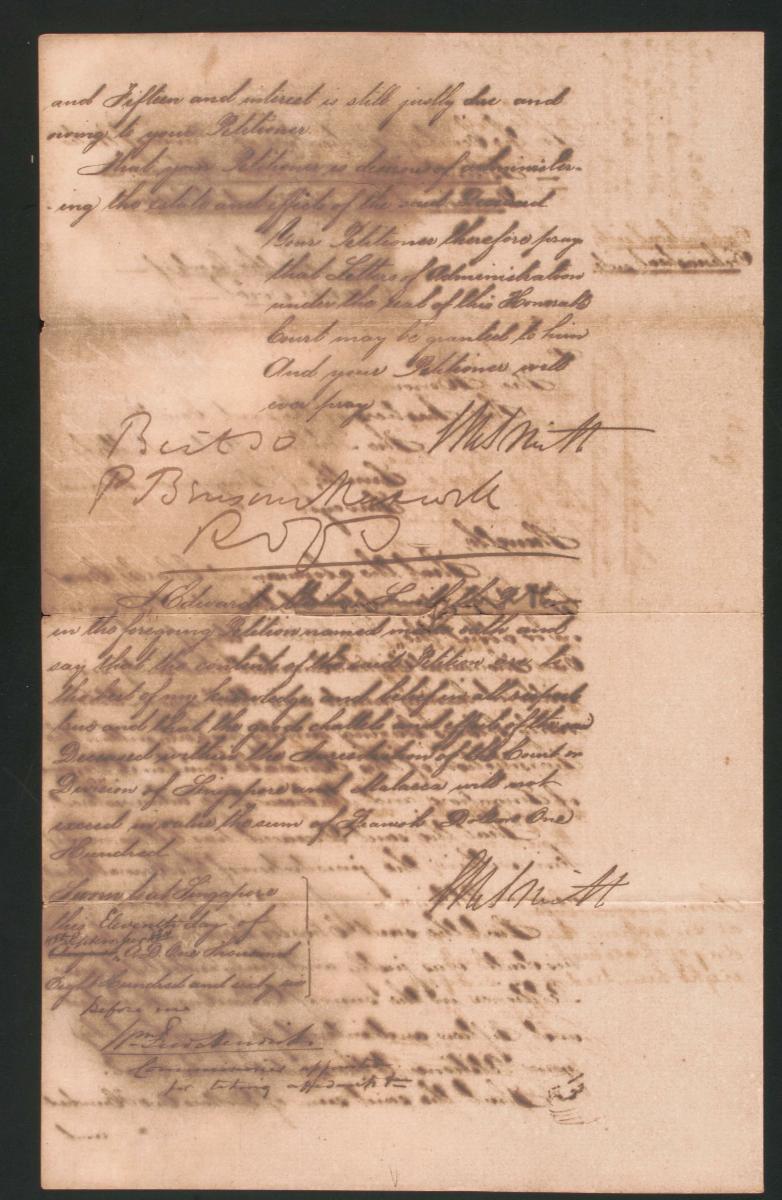 and Fifteen and interest is still justly due and
owing to your Petitioner.
That your Petitioner is desirous of administer-
-ing the estate and effects of the said Deceased
Your Petitioner therefore prays
that Letters of Administration
under the seal of this Honorable
Court may be granted to him
And your Petitioner will
ever pray
I Edward
in the foregoing Petition named make oath and
say that the contents of the said Petition are to
the best of my knowledge and belief in all respects
true and that the goods chattels and effects of the
Deceased within the Jurisdiction of the Court or
Division of Singapore and Malacca will not
exceed in value the sum of Spanish Dollars One
Hundred
Sworn at Singapore
this Eleventh day of
A.D. One thousand
Eight Hundred and sixty
Before me
Commissioner
for taking affidavits